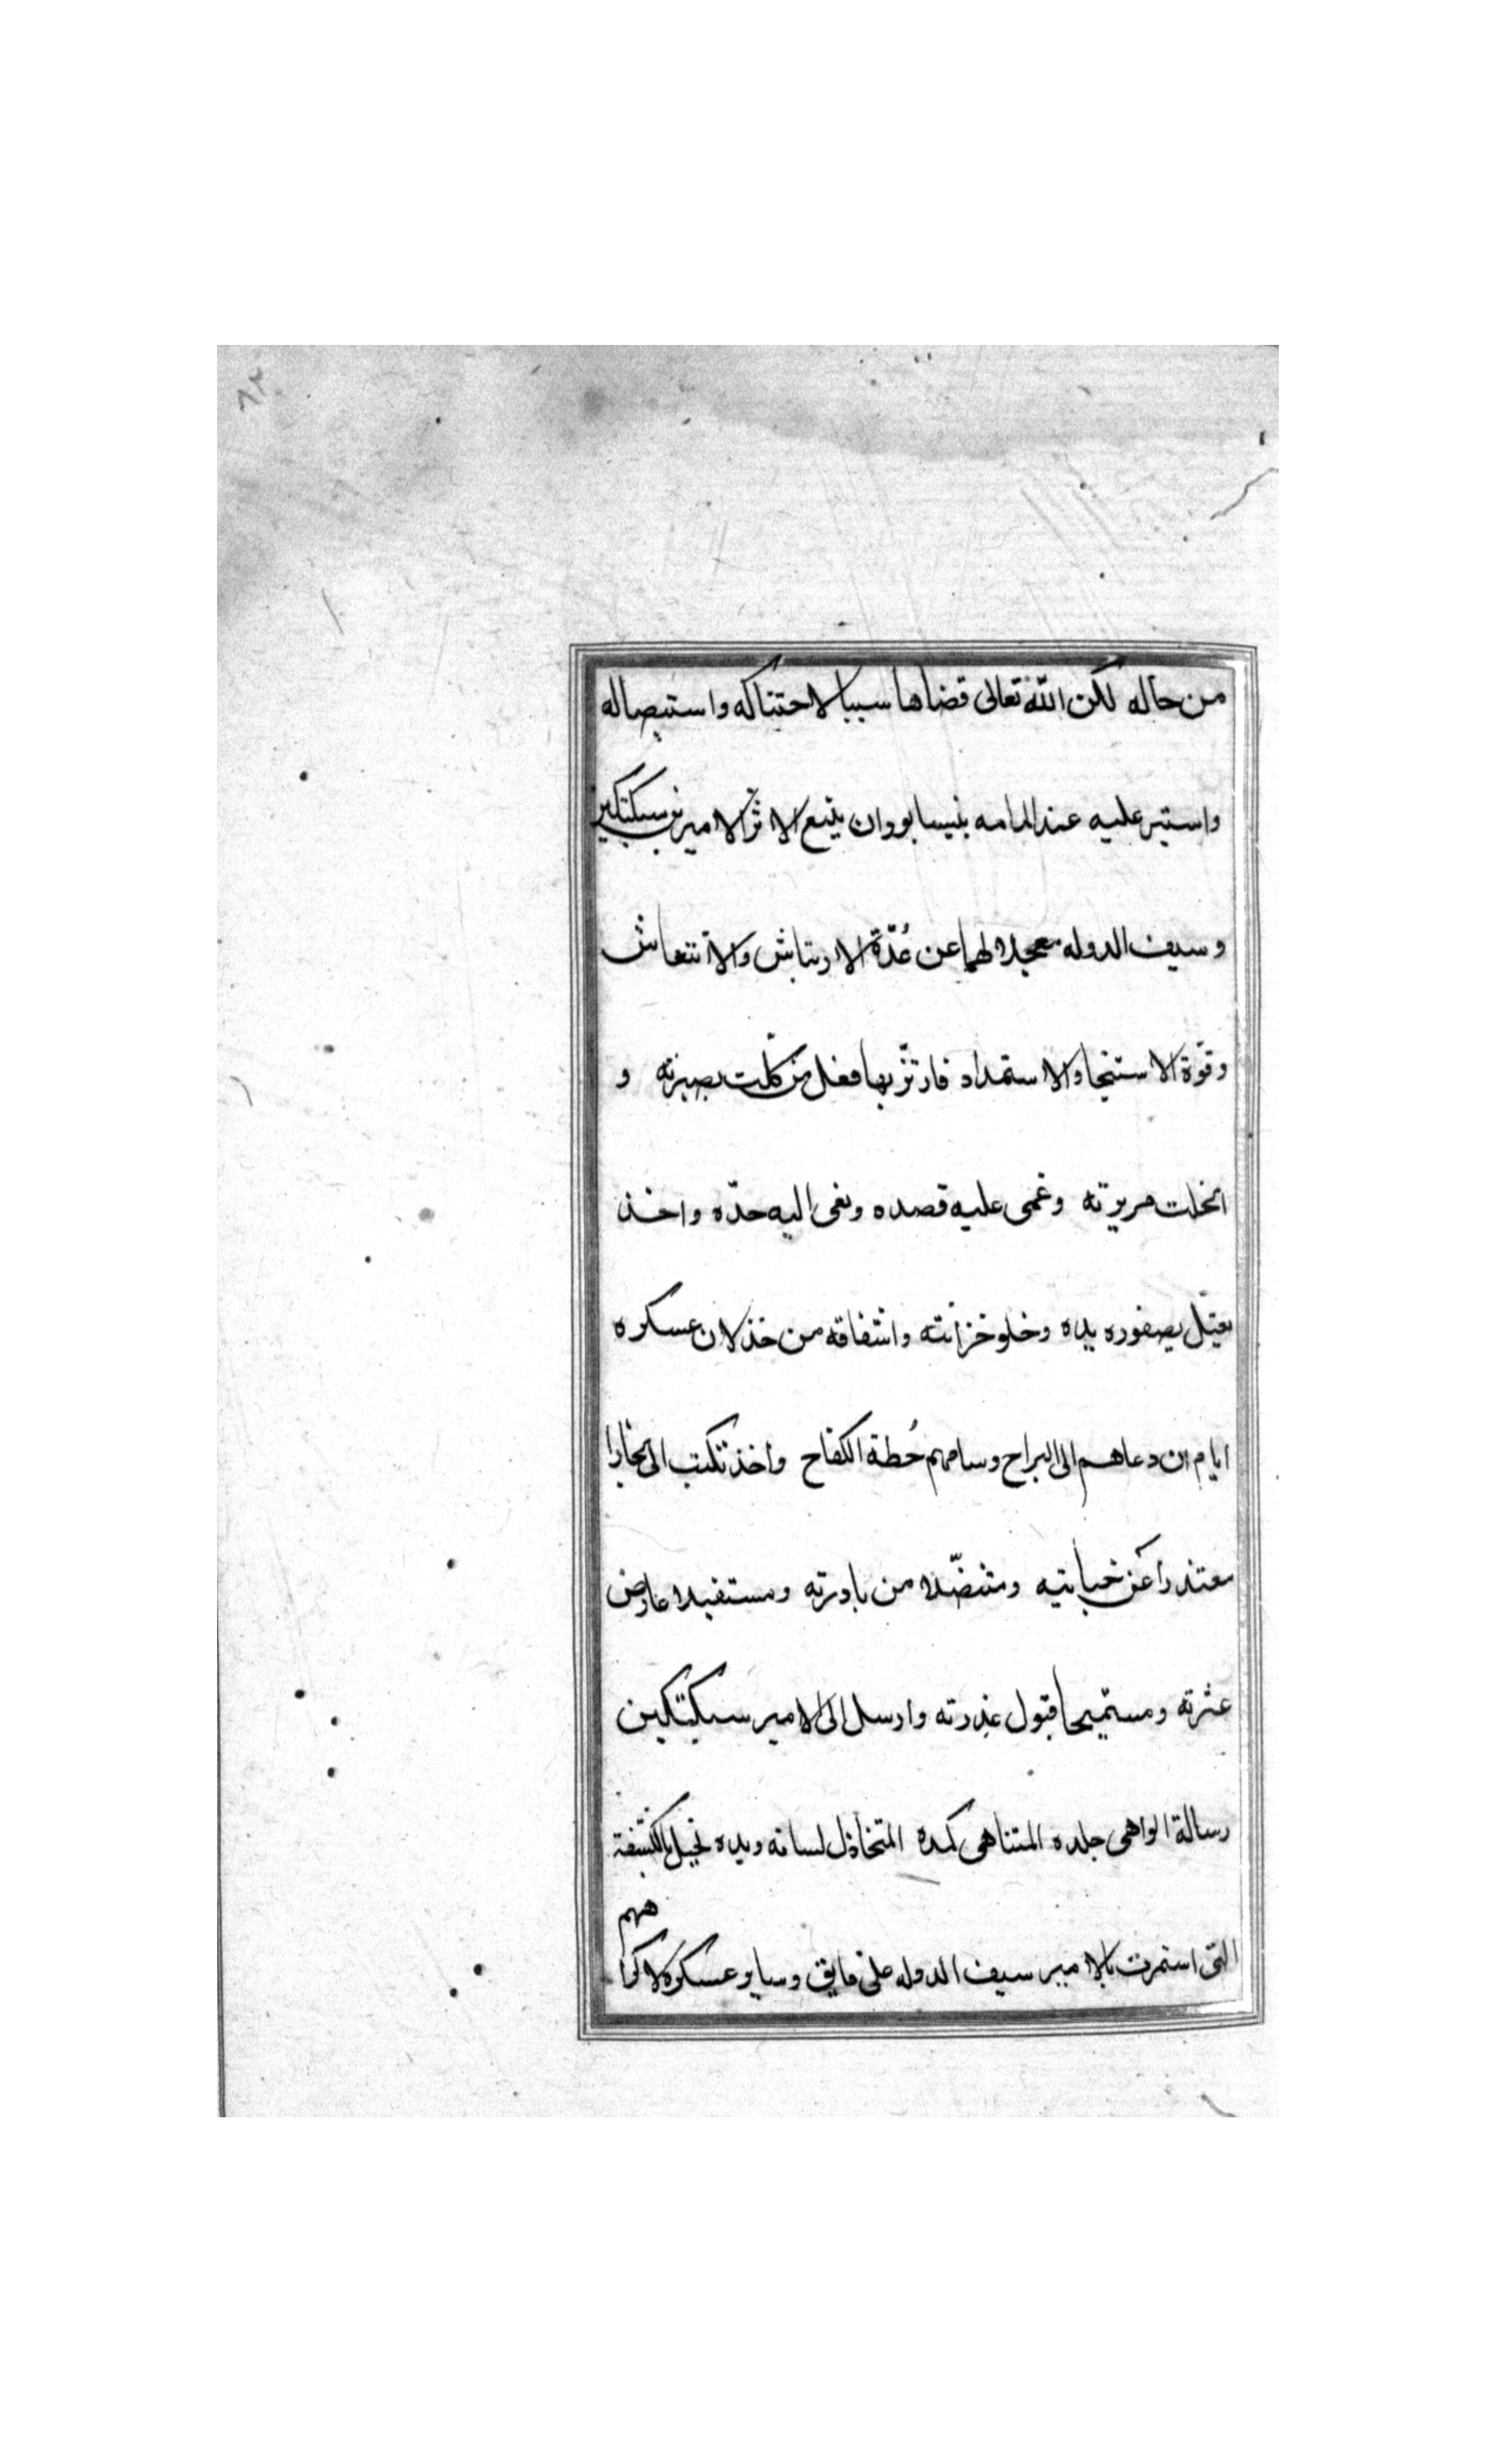 ٨٢
من حاله لكن الله تعالى قضاها سببا لاحتناكه واستيصاله
واستير عليه عند المامه بنيسابور ان يتبع الاثر الاميرين سبكتكين
وسيف الدوله معجلا لهما عن عُدّة الارتياش والانتعاش
وقوّة الاستنجاد والاستمداد فارتثّ بها فعل من كلّت بصيرته و
انحلت مريرته وعمى عليه قصده ونعى اليه حدّه واخذ
يعتلّ بصفوره يده وخلو خزانته واشفاقه من خذلان عسكره
ايام ان دعاهم الى البراح وسامهم خُطة الكفاح واخذ تكتب الى بخارا
معتذرا عن خيانتيه ومتنصّلا من بادرته ومستقيلا عارض
عثرته ومستميحا قبول عذرته وارسل الى الامير سبكتكين
رسالة الواهى جلده المتناهى كمده المتخاذل لسانه ويده يحيل بالكشفة
التى استمرت بالامير سيف الدوله على فايق وساير عسكره لاكرا
ههم